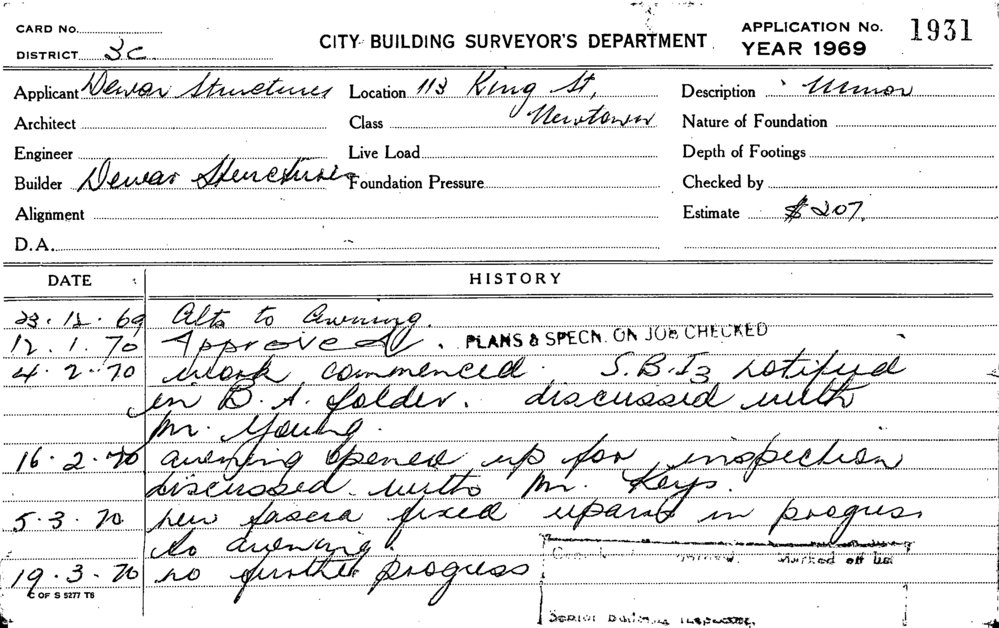 CARD No.
DISTRICT 3C
CITY BUILDING SURVEYOR'S DEPARTMENT
APPLICATION No. 1931
YEAR 1969
Applicant Dewar Structures
Location 113 King St,
Newtown
Description Minor
Architect
Class
Nature of Foundation
Engineer
Live Load
Depth of Footings
Builder Dewar Structures
Foundation Pressure
Checked by
Alignment
Estimate $207.
D.A.
DATE
HISTORY
23.12.69 Alts to Awning.
12.1.70 Approved. PLANS & SPECN. ON JOB CHECKED
4.2.70 work commenced. S.B.I3 notified
in B.A. folder. discussed with
Mr. Young.
16.2.70 awning opened up for inspection
discussed with Mr. Keys.
5.3.70 new fascia fixed in progress
to awning.
marked off list
19.3.70 no further progress
C OF S 5277 T6